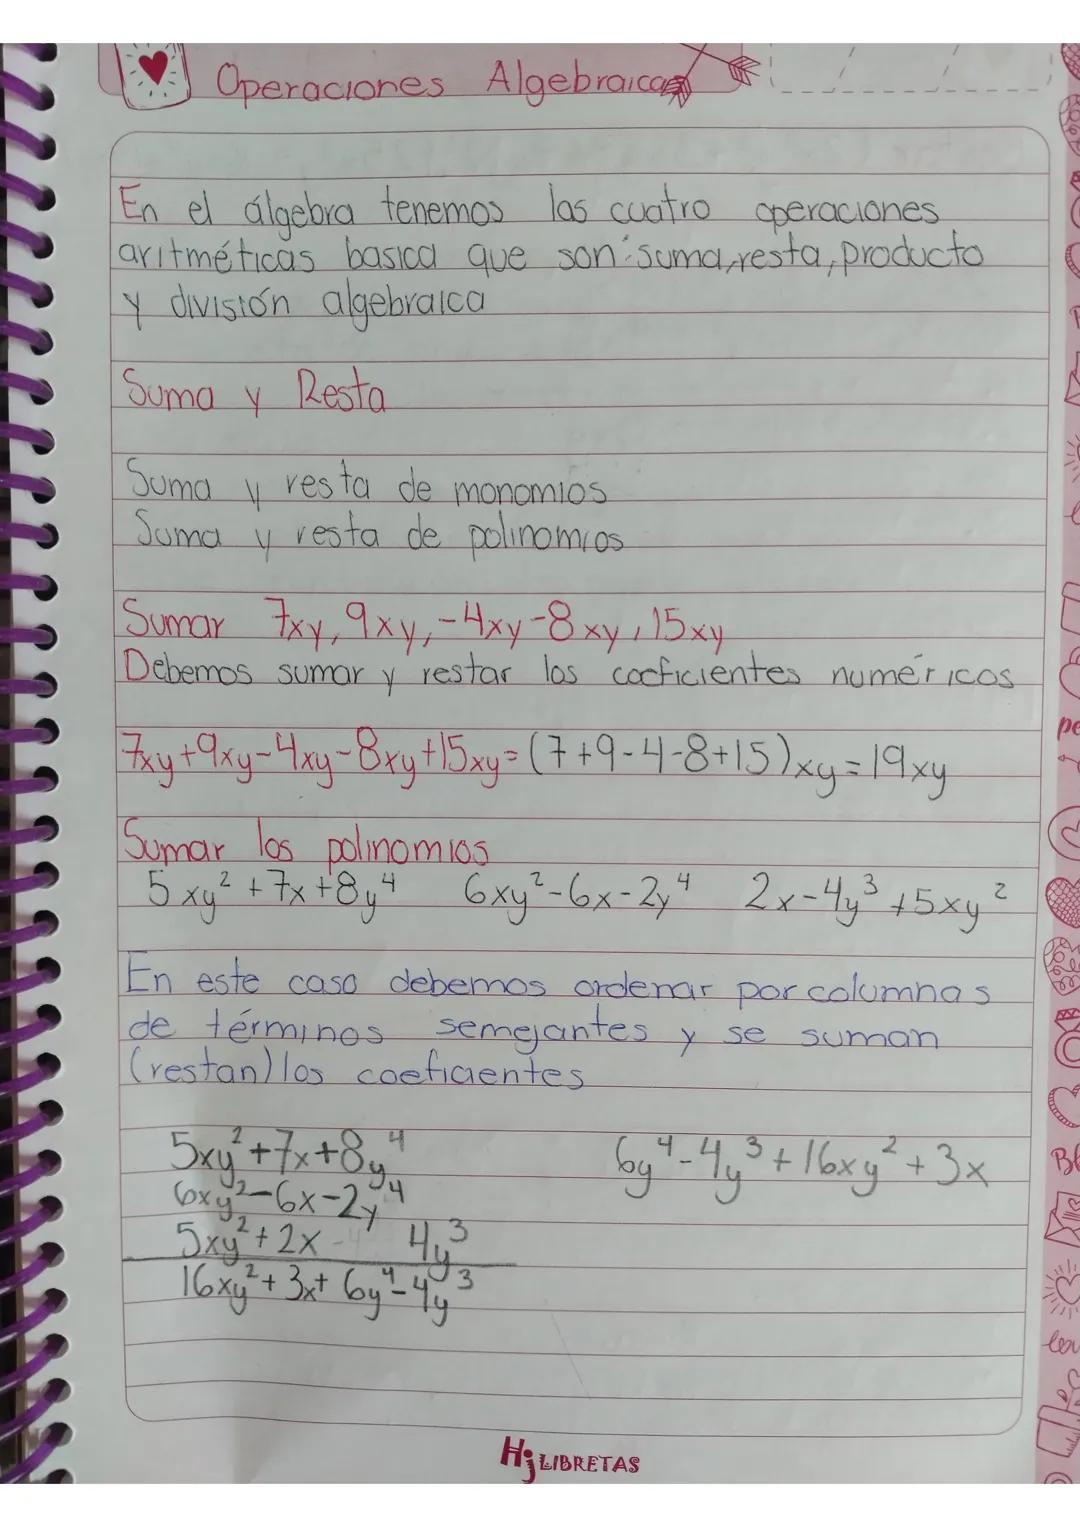 Operaciones Algebraicas
En el álgebra tenemos las cuatro operaciones
aritméticas basica que son: suma, resta, producto
y división algebraica
Suma y Resta
Suma y resta de monomios
Suma y resta de polinomios
Sumar 7xy, 9xy, -4xy -8xy, 15xy
Debemos sumar y restar los coeficientes numéricos
7xy+9xy-4xy-8xy+15xy=(7+9-4-8+15)xy=19xy
Sumar los polinomios
5xy²+7x+8y⁴ 6xy²-6x-2y⁴ 2x-4y³+5xy²
En este caso debemos ordenar por columnas
de términos semejantes y se suman
(restan) los coeficientes
5xy²+7x+8y⁴ 6y⁴-4y³+16xy²+3x
6xy²-6x-2y⁴
5xy²+2x - 4y³
16xy²+3x+6y⁴-4y³
Hj LIBRETAS